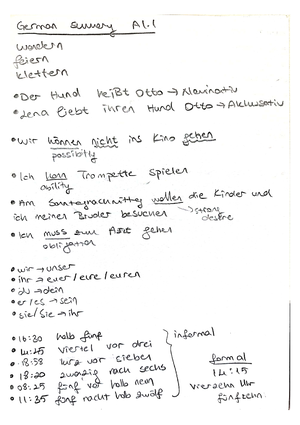 German summery A1.1
wandern
feiern
klettern
• Der Hund heißt Otto → Nominativ
• Lena liebt ihren Hund Otto → Akkusativ
• Wir können nicht ins Kino gehen
possibility
• Ich kann Trompette spielen
ability
• Am Sonntagnachmittag wollen die Kinder und
ich meinen Bruder besuchen → strong
desire
• Ich muss zum Arzt gehen
obligation
• wir → unser
• ihr → euer / eure / euren
• du → dein
• er/es → sein
• sie/Sie → ihr
• 16:30 halb fünf
• 14:45 viertel vor drei
• 18:58 kurz vor sieben
• 18:20 zwanzig nach sechs
• 08:25 fünf vor halb neun
• 11:35 fünf nacht halb zwölf
informal
formal
14:15
vierzehn Uhr
fünfzehn.